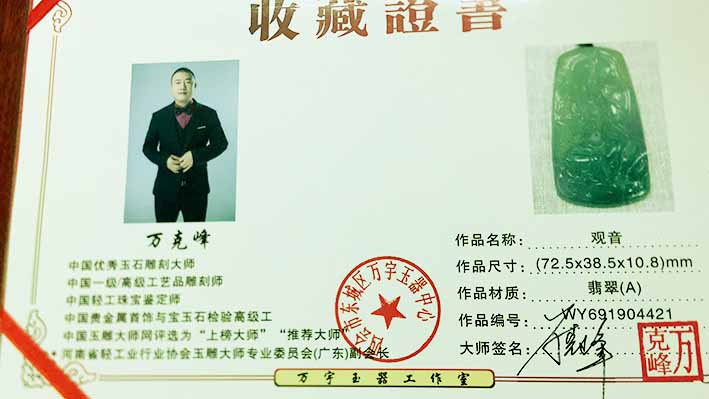 收藏證書
万克峰
中国优秀玉石雕刻大师
中国一级/高级工艺品雕刻师
中国轻工珠宝鉴定师
中国贵金属首饰与宝玉石检验高级工
中国玉雕大师网评选为“上榜大师”“推荐大师”
河南省轻工业行业协会玉雕大师专业委员会(广东)副会长
四会市东城区万宇玉器中心
作品名称: 观音
作品尺寸: (72.5x38.5x10.8)mm
作品材质: 翡翠(A)
作品编号: WY691904421
大师签名: 万克峰
万克峰
万宇玉器工作室